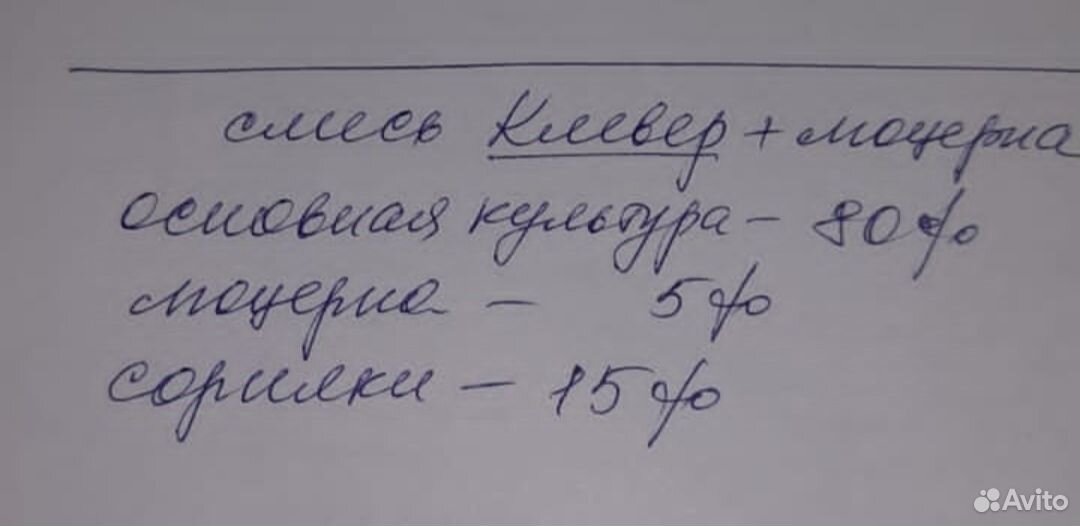 смесь Клевер + люцерна
основная культура – 80%
люцерна – 5%
сорняки – 15%
Avito